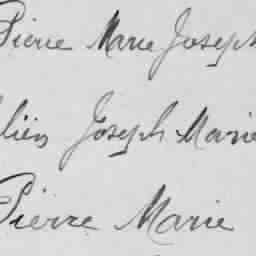 Pierre Marie Joseph
lien Joseph Marie
Pierre Marie